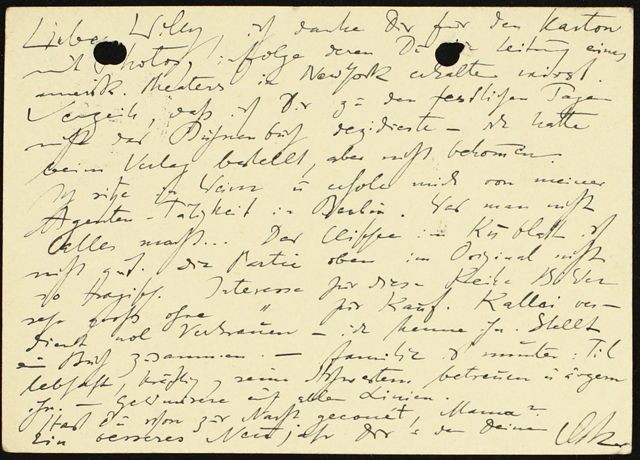 Lieber Willy, ich danke Dir für den Karton
mit Photos, infolge deren Du die Leitung eines
amerik. Theaters in New York erhalten wirst.
Verzeih, daß ich Dir zu den festlichen Tagen
nicht das Bühnenbuch dezidierte – ich hatte
beim Verlag bestellt, aber nicht bekommen.
Ich sitze in Weim u erhole mich von meiner
Agenten-Tätigkeit in Berlin. Was man nicht
alles macht... Das Clischee im Kunstblatt ist
nicht gut. die Partie oben im Original nicht
so tragisch. Interesse für diese Reihe
sehr groß ohne " für Kauf. Kallai ver-
dient wol Vertrauen – ich kenne ihn. Stellt
ein Buch zusammen. – Familie ist munter: Til
lebhaft, kräftig, seine Schwestern betreuen u ärgern
ihn, – auf allen Linien.
Hast Du schon zur Nacht , Mama?
Ein besseres Neujahr Dir u den Deinen Oskar